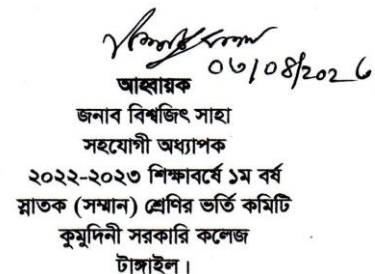 ০৬/০৪/২০২৬
আহ্বায়ক
জনাব বিশ্বজিৎ সাহা
সহযোগী অধ্যাপক
২০২২-২০২৩ শিক্ষাবর্ষে ১ম বর্ষ
স্নাতক (সম্মান) শ্রেণির ভর্তি কমিটি
কুমুদিনী সরকারি কলেজ
টাঙ্গাইল।